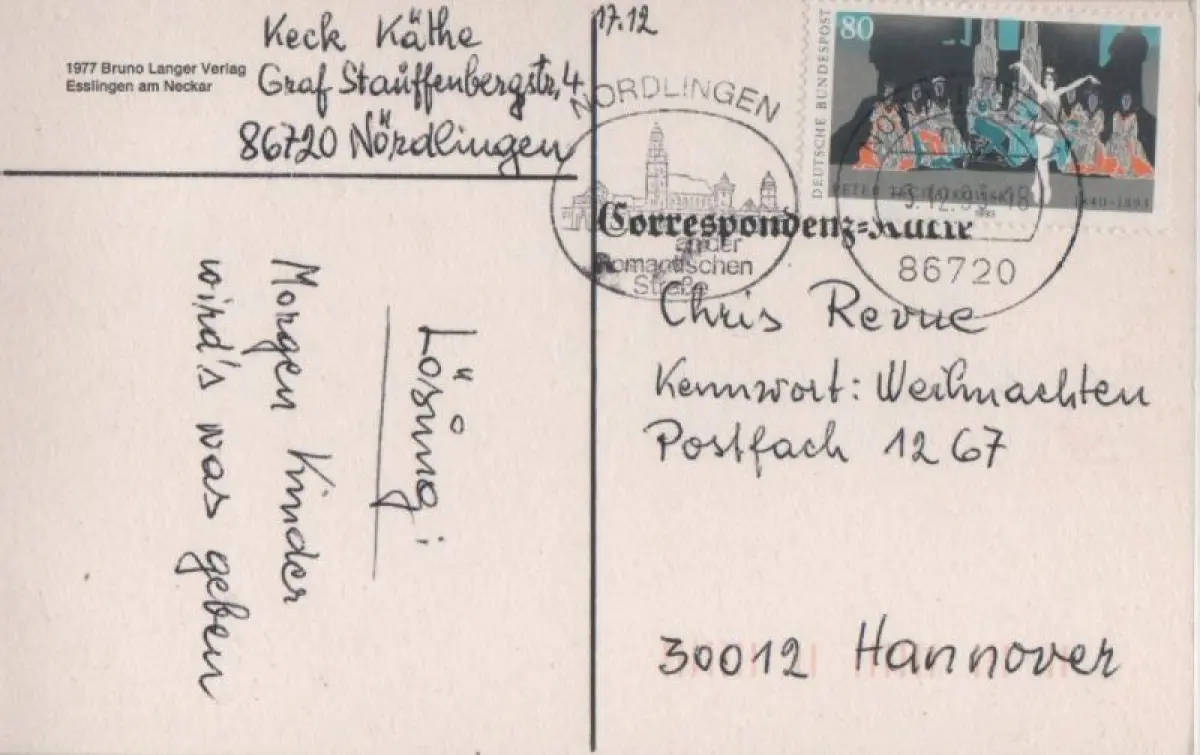 Keck Käthe
Graf Stauffenbergstr. 4
86720 Nördlingen
1977 Bruno Langer Verlag
Esslingen am Neckar
17.12
80
DEUTSCHE BUNDESPOST
PETER TSCHAIKOWSKY
1840-1893
NÖRDLINGEN
an der
Romantischen
Straße
86720
Correspondenz-Karte
Lösung:
Morgen Kinder
wird's was geben
Chris Revue
Kennwort: Weihnachten
Postfach 1267
30012 Hannover